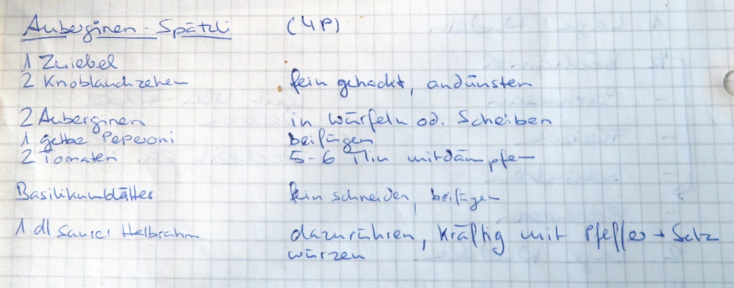 Auberginen-Spätzli (4P)
1 Zwiebel
2 Knoblauchzehen fein gehackt, andünsten
2 Auberginen in Würfeln od. Scheiben
1 gelbe Peperoni beifügen
2 Tomaten 5-6 Min mitdämpfen
Basilikumblätter fein schneiden, beifügen
1 dl saurer Halbrahm dazurühren, kräftig mit Pfeffer + Salz
würzen